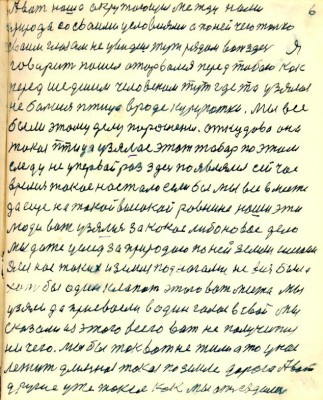 6
А вот наша окружающая между нами
природа со своими условиями а по ней чего только
своими глазами не увидишь тут рядом возле Я
говорит пошел оторвался перед тобою как
перед шедшим человеком тут где то узялася
не большая птица вроде куропатки. Мы все
были этому делу порошени. откудова она
такая птица узялася этот товар по этом
следу не упервай раз здесь появлялися сейчас
время такое настало если бы мы все вместе
да еще на такой высокой ровнине наши эти
люди вот узялися за какое либо новое дело
мы дате умея за природою по ней земли
Я у нас такая и земля под ногами не была
хотя бы один клапот этого вот места мы
узяли да присвоили в один голос в свой мы
сказали из этого всего вот не получится
ничего. Мы бы так вот не жили а то у нас
лежит длинная такая по земле дорога А вот
другие уже такое как мы